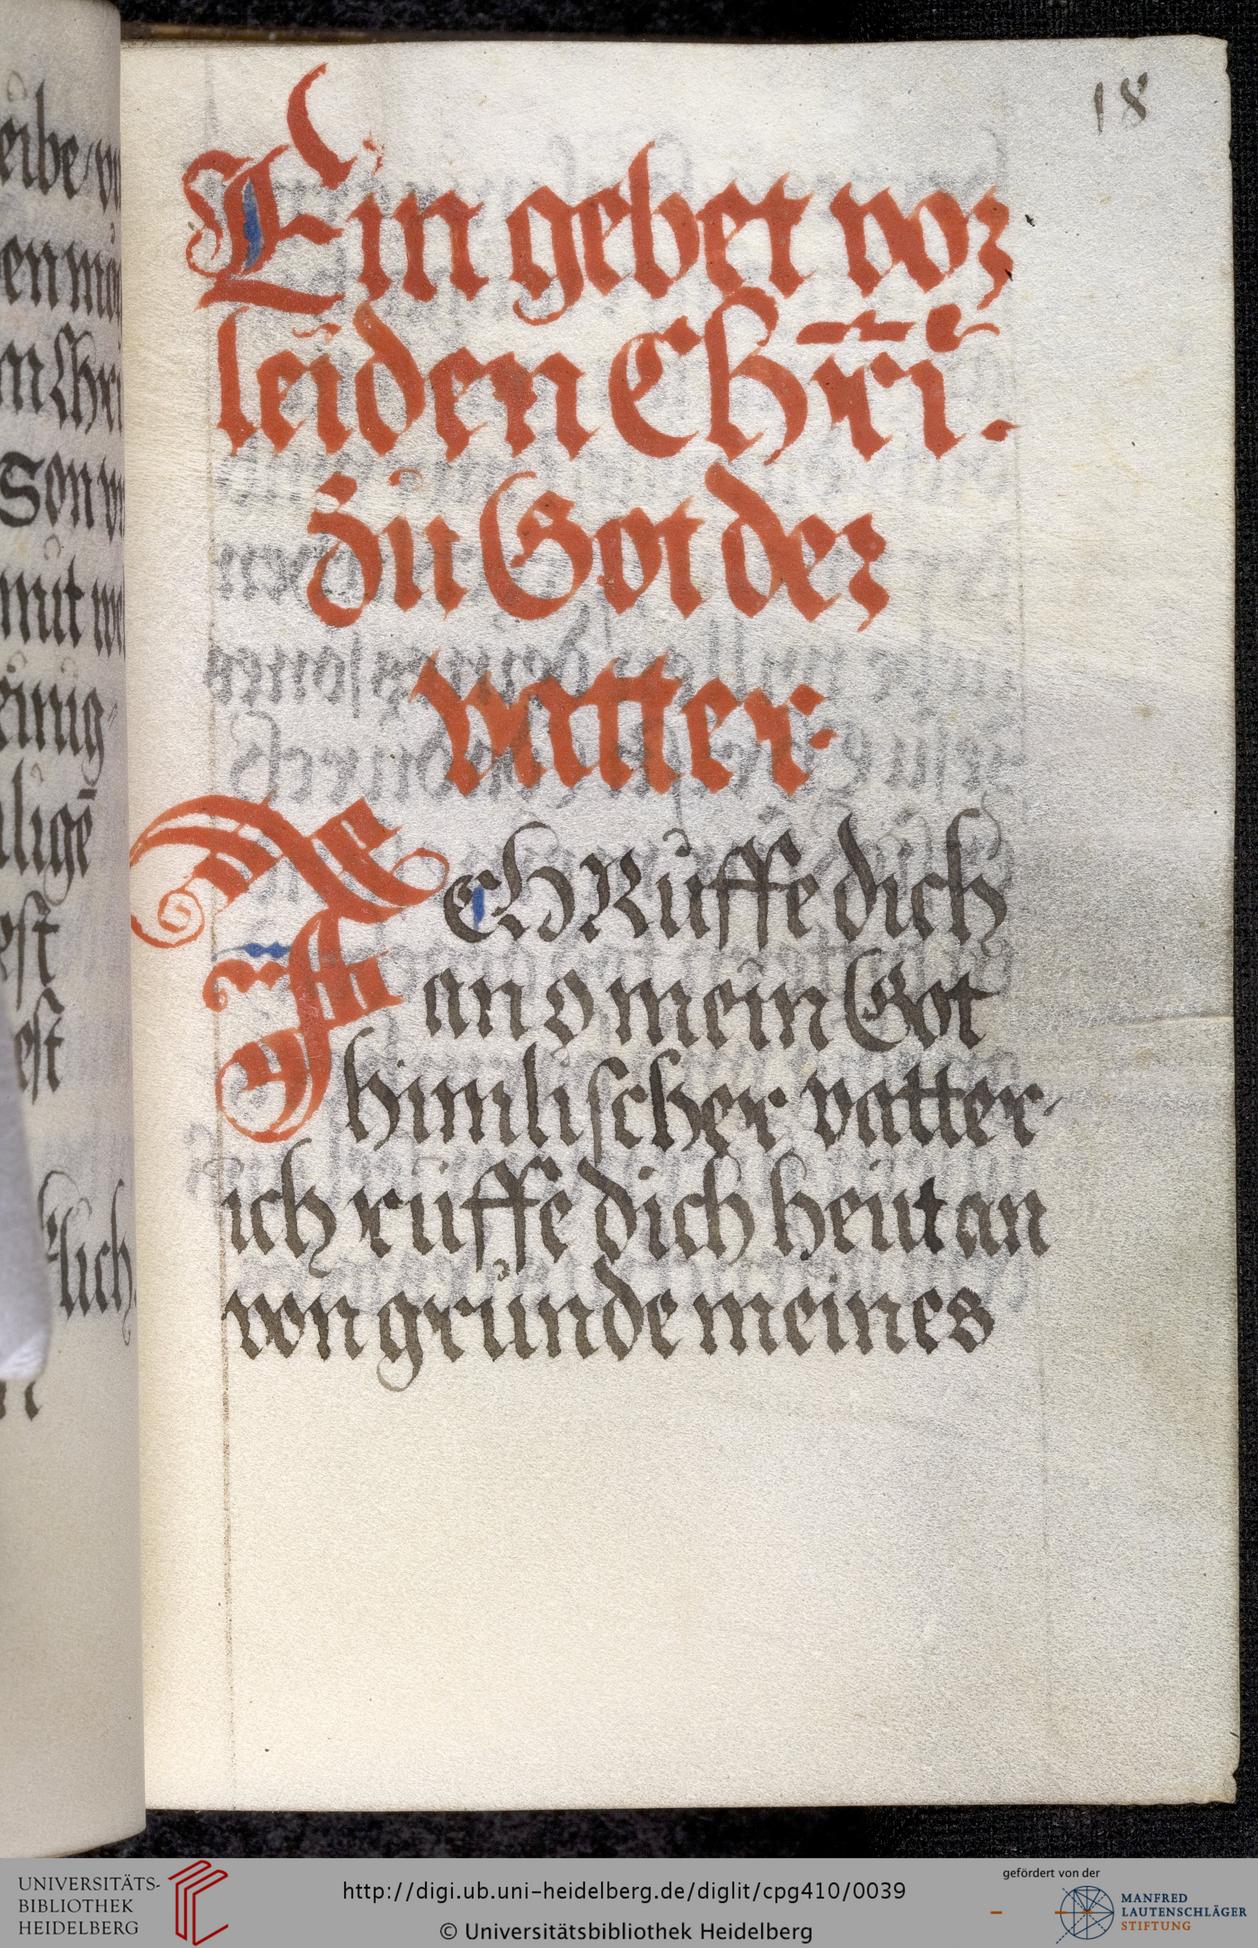 18
Ein gebet vor
leiden Chr̄i.
Zu Got der
vatter.
IcH Ruͦffe dich
an o mein Got
himlischer vatter.
ich ruͦffe dich heut an
von grunde meines
eibe
Son
mit
einig
ligē
est
est
lich
UNIVERSITÄTS-
BIBLIOTHEK
HEIDELBERG
http://digi.ub.uni-heidelberg.de/diglit/cpg410/0039
© Universitätsbibliothek Heidelberg
gefördert von der
MANFRED
LAUTENSCHLÄGER
STIFTUNG